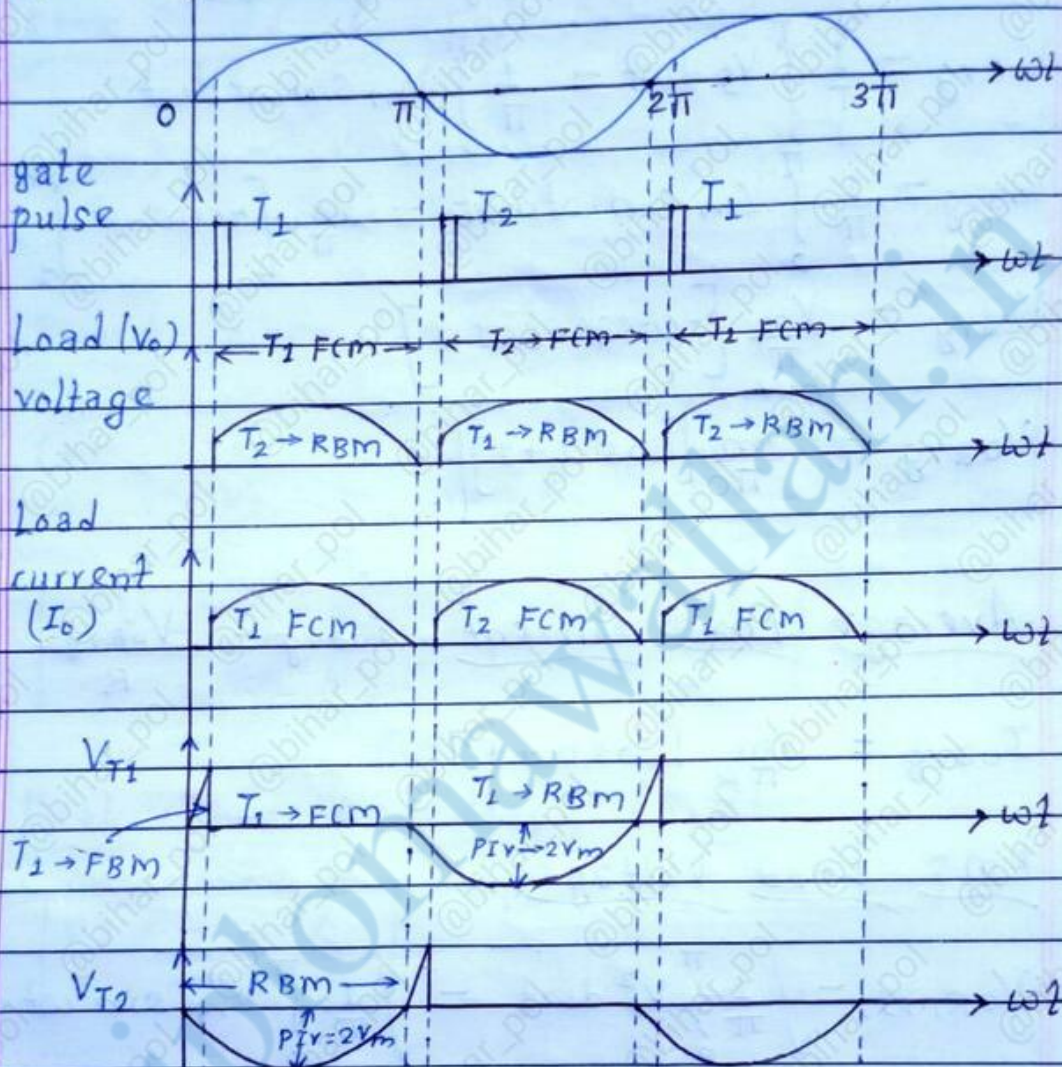 0 π 2π 3π ωt
gate
pulse T1 T2 T1 ωt
Load (V₀) T1 FCM T2→FCM T2 FCM
voltage T2→RBM T1→RBM T2→RBM ωt
Load
current
(I₀) T1 FCM T2 FCM T1 FCM ωt
VT1 T1→FCM T1→RBM ωt
T1→FBM PIV→2Vm
VT2 RBM ωt
PIV=2Vm
@bihar_pol
plomawallah.in